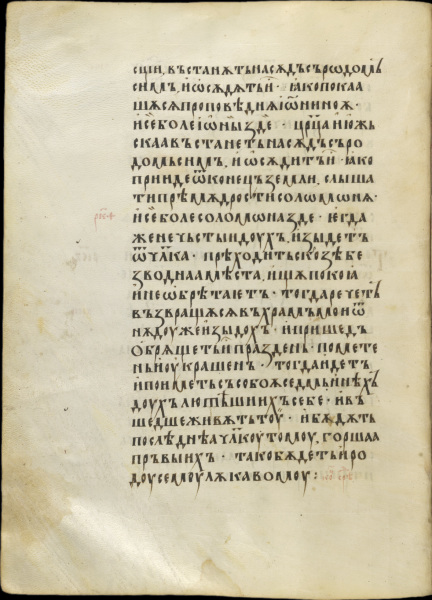 сции, въстанѫтъ на сѫдъ съ родомь
симъ, и ѡсѫдѧтъ и · ꙗко покаа
шѧсѧ проповѣдиѧ іѡниноѫ ·
и се боле іѡны зде · црца южь
скаа въстанетъ на сѫдъ съ ро
домь симъ, и ѡсѫдитъ и · ꙗко
прииде ѿ конець земли, слыша
ти прѣмѫдрости соломѡнѧ ·
и се боле соломѡна зде · ѥгда
же нечьстыи доухъ, изыдетъ
ѿ члка · прѣходитъ сквозѣ бе
зводнаа мѣста, ищѧ покоꙗ
и не ѡбрѣтаѥтъ · тогда речетъ
възвращѫсѧ въ храмъ мои ѿ
нѫдоуже изыдохъ · и пришедъ
обрѧщетъ и празденъ · помете
нъ и оукрашенъ · тогда идетъ
и поиметъ съ собоѫ седмь инѣхъ
доухъ лютѣишихъ себе · и въ
шедше живѫтъ тоу · и бѫдѫтъ
послѣднѣа члкоу томоу, горшаа
пръвыихъ · тако бѫдетъ и ро
доу семоу лѫкавомоу :